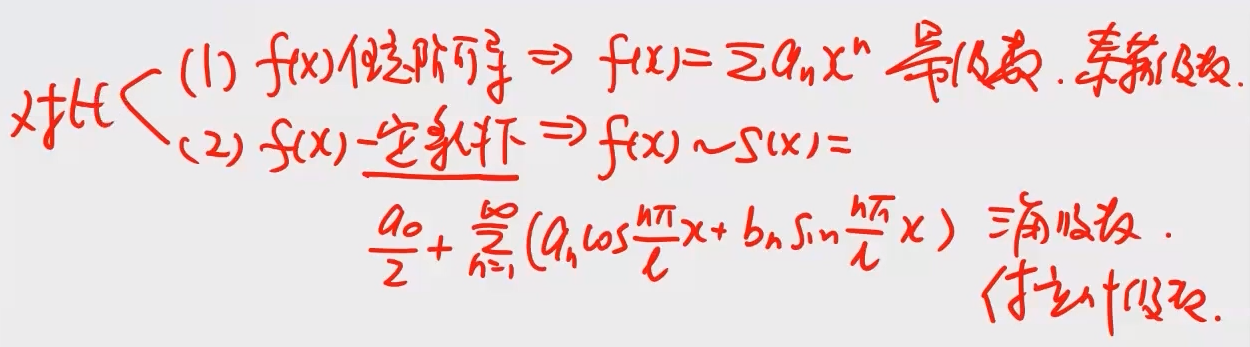 对比 (1) f(x)任意阶可导 ⇒ f(x)=Σaₙxⁿ 幂级数.泰勒级数.
(2) f(x)一定条件下 ⇒ f(x)~S(x)=
a₀/2 + ∑_{n=1}^{∞}(aₙcos nπ/l x + bₙ sin nπ/l x) 三角级数.
傅立叶级数.